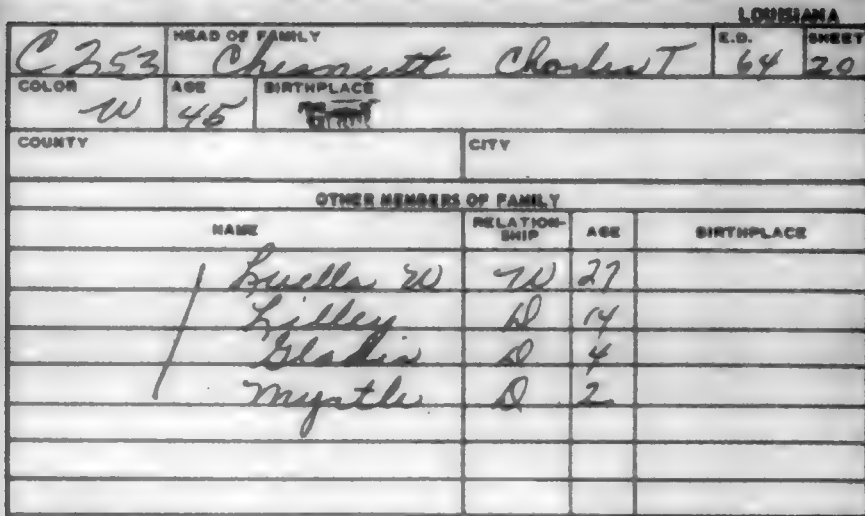 LOUISIANA
C 253 HEAD OF FAMILY Chesnutt Charles T E.D. 64 SHEET 20
COLOR W AGE 45 BIRTHPLACE
COUNTY CITY
OTHER MEMBERS OF FAMILY
NAME RELATION-SHIP AGE BIRTHPLACE
Luella W W 27
Lilley D 14
Gladis D 4
Myrtle D 2